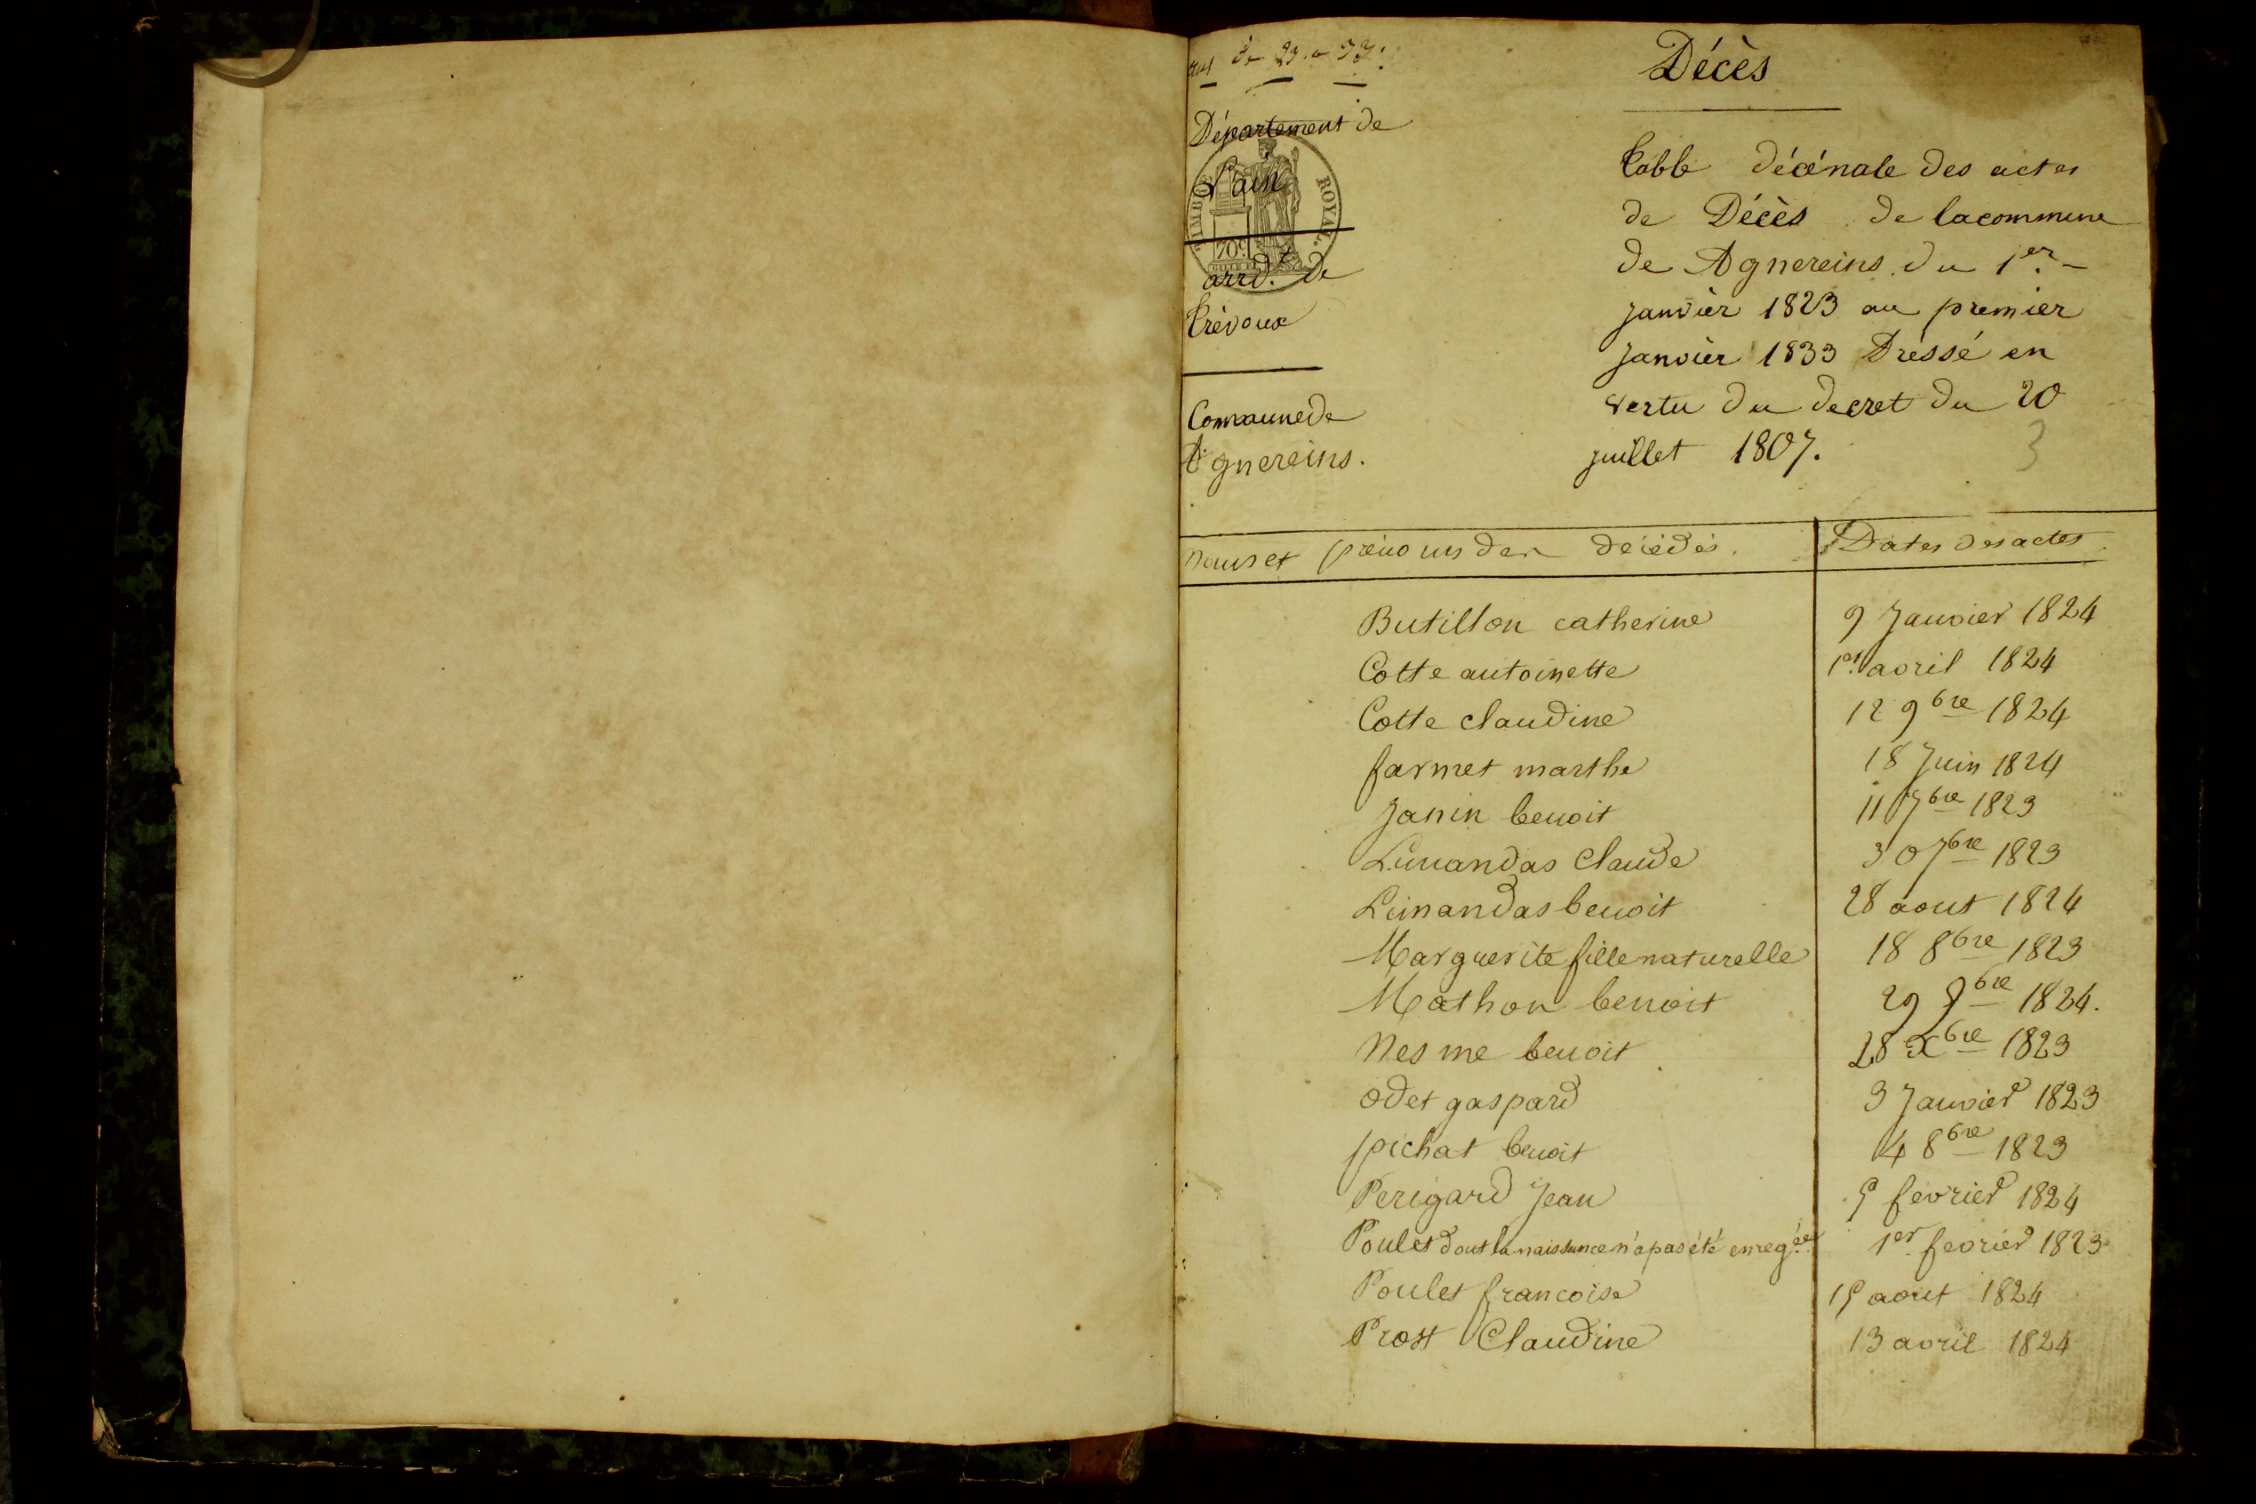 de 23 a 33.
Décès
Département de
l'ain
TIMBRE ROYAL.
70c.
arrdt. de
trévoux
Commune de
Agnereins.
table décénale des actes
de Décès de la commune
de Agnereins du 1er. -
janvièr 1823 au premier
janvièr 1833 Dréssé en
vertu du decret du 20
juillet 1807.
3
noms et prénoms des décédés.
Dates des actes.
Butillon catherine 9 Janvier 1824
Cotte antoinette 1er. avril 1824
Cotte claudine 12 9bre 1824
farmet marthe 18 Juin 1824
Janin benoit 11 7bre 1823
Limandas Claude 30 7bre 1823
Limandas benoit 28 aout 1824
Marguerite fille naturelle 18 8bre 1823
Mathon benoit 29 8bre 1824.
Nesme benoit 28 Xbre 1823
odet gaspard 3 Janvier 1823
pichat benoit 4 8bre 1823
Perigard Jean 5 fevrier 1824
Poulet dont la naissance n'a pas été enregée. 1er fevrier 1823
Poulet francoise 15 aout 1824
Prost Claudine 13 avril 1824